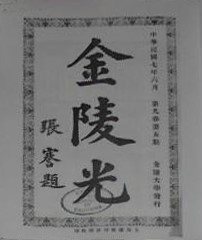 中華民國七年六月 第九卷第五期 金陵大學發行
金陵光
張謇題